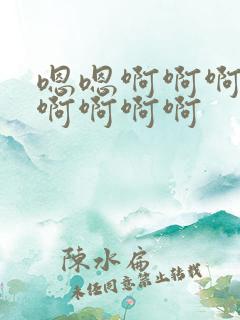 嗯嗯啊啊啊
啊啊啊啊
陳水扁
未经同意禁止转载